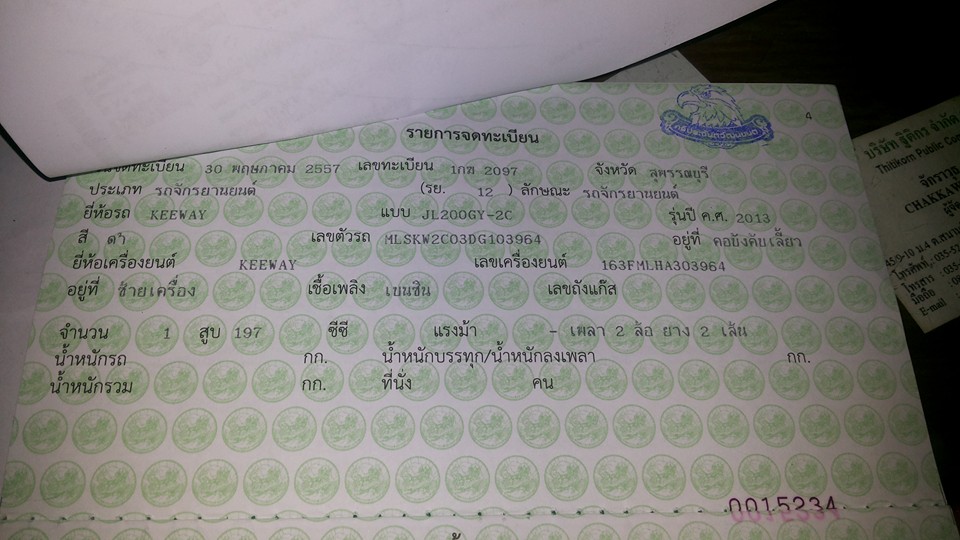 4
รายการจดทะเบียน
จดทะเบียน 30 พฤษภาคม 2557 เลขทะเบียน 1กฑ 2097 จังหวัด สุพรรณบุรี
ประเภท รถจักรยานยนต์ (รย. 12 ) ลักษณะ รถจักรยานยนต์
ยี่ห้อรถ KEEWAY แบบ JL200GY-2C รุ่นปี ค.ศ. 2013
สี ดำ เลขตัวรถ MLSKW2C03DG103964 อยู่ที่ คอบังคับเลี้ยว
ยี่ห้อเครื่องยนต์ KEEWAY เลขเครื่องยนต์ 163FMLHA303964
อยู่ที่ ซ้ายเครื่อง เชื้อเพลิง เบนซิน เลขถังแก๊ส
จำนวน 1 สูบ 197 ซีซี แรงม้า - เพลา 2 ล้อ ยาง 2 เส้น
น้ำหนักรถ กก. น้ำหนักบรรทุก/น้ำหนักลงเพลา กก.
น้ำหนักรวม กก. ที่นั่ง คน
0015334
บริษัท ฐิติกร จำกัด
Thitikorn Public Com
จักราวุ
CHAKKAW
69/9-10 ม.4 ถ.
โทรศัพท์. : 035-52
โทรสาร : 035
มือถือ : 08
E-mail :